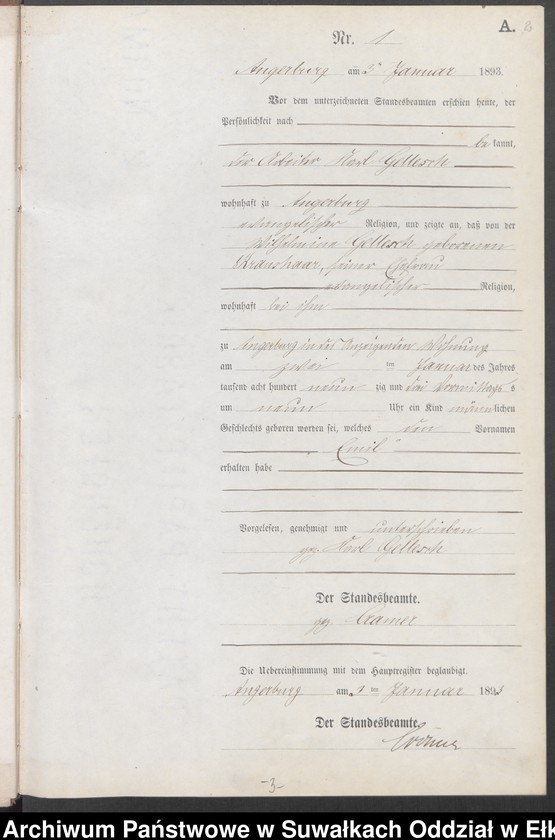 A.
Nr. 1
Angerburg am 3 ten Januar 1893.
Vor dem unterzeichneten Standesbeamten erschien heute, der
Persönlichkeit nach
be kannt,
der Arbeiter Karl Gollesch
wohnhaft zu Angerburg
evangelischer Religion, und zeigte an, daß von der
Wilhelmine Gollesch geborenen
Kraushaar, seiner Ehefrau
evangelischer Religion,
wohnhaft bei ihm
zu Angerburg in des Anzeigenden Wohnung
am zwei ten Januar des Jahres
tausend acht hundert neun zig und drei Vormittags
um neun Uhr ein Kind männlichen
Geschlechts geboren worden sei, welches den Vornamen
„Emil“
erhalten habe
Vorgelesen, genehmigt und unterschrieben
gez. Karl Gollesch
Der Standesbeamte.
gez. Cramer
Die Uebereinstimmung mit dem Hauptregister beglaubigt.
Angerburg am 3 ten Januar 1893
Der Standesbeamte.
Cramer
-3-
Archiwum Państwowe w Suwałkach Oddział w Ełk